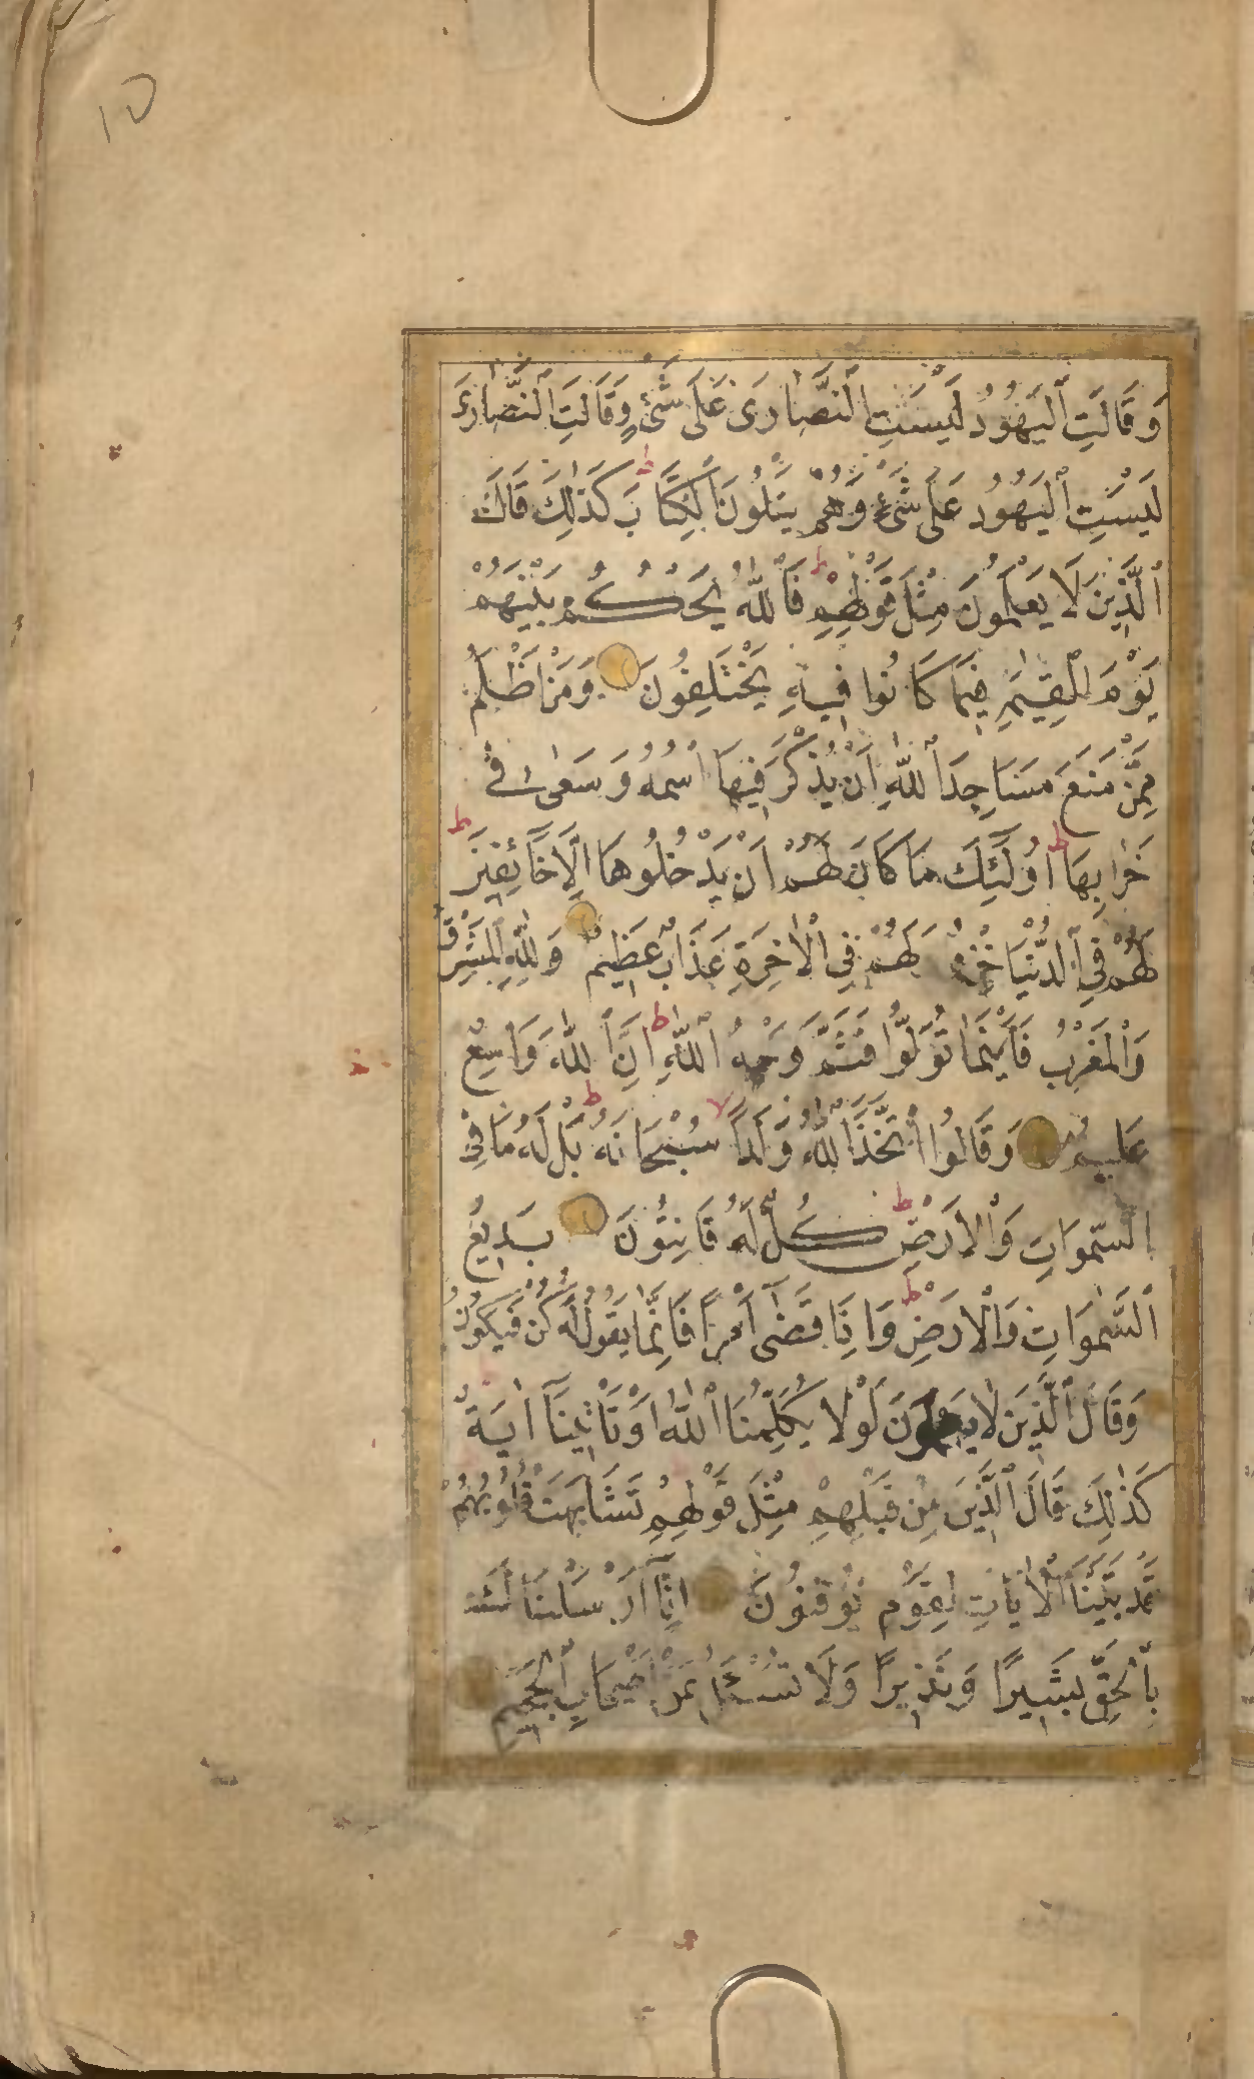 10
وَقَالَتِ ٱلْيَهُودُ لَيْسَتِ ٱلنَّصَارَىٰ عَلَىٰ شَىْءٍ وَقَالَتِ ٱلنَّصَارَىٰ
لَيْسَتِ ٱلْيَهُودُ عَلَىٰ شَىْءٍ وَهُمْ يَتْلُونَ ٱلْكِتَابَ ط كَذٰلِكَ قَالَ
ٱلَّذِينَ لَا يَعْلَمُونَ مِثْلَ قَوْلِهِمْ ط فَٱللّٰهُ يَحْكُمُ بَيْنَهُمْ
يَوْمَ ٱلْقِيٰمَةِ فِيمَا كَانُوا فِيهِ يَخْتَلِفُونَ وَمَنْ اَظْلَمُ
مِمَّنْ مَنَعَ مَسَاجِدَ ٱللّٰهِ اَنْ يُذْكَرَ فِيهَا ٱسْمُهُ وَسَعىٰ فِى
خَرَابِهَا ط اُولٰٓئِكَ مَا كَانَ لَهُمْ اَنْ يَدْخُلُوهَا اِلَّا خَآئِفِينَ ط
لَهُمْ فِى ٱلدُّنْيَا خِزْىٌ وَلَهُمْ فِى ٱلْاٰخِرَةِ عَذَابٌ عَظِيمٌ وَلِلّٰهِ ٱلْمَشْرِقُ
وَٱلْمَغْرِبُ فَاَيْنَمَا تُوَلُّوا فَثَمَّ وَجْهُ ٱللّٰهِ ط اِنَّ ٱللّٰهَ وَاسِعٌ
عَلِيمٌ وَقَالُوا ٱتَّخَذَ ٱللّٰهُ وَلَدًا لا سُبْحَانَهُ ط بَلْ لَهُ مَا فِى
ٱلسَّمٰوَاتِ وَٱلْاَرْضِ ط كُلٌّ لَهُ قَانِتُونَ بَدِيعُ
ٱلسَّمٰوَاتِ وَٱلْاَرْضِ ط وَاِذَا قَضٰٓى اَمْرًا فَاِنَّمَا يَقُولُ لَهُ كُنْ فَيَكُونُ
وَقَالَ ٱلَّذِينَ لَا يَعْلَمُونَ لَوْلَا يُكَلِّمُنَا ٱللّٰهُ اَوْ تَاْتِينَآ اٰيَةٌ
كَذٰلِكَ قَالَ ٱلَّذِينَ مِنْ قَبْلِهِمْ مِثْلَ قَوْلِهِمْ تَشَابَهَتْ قُلُوبُهُمْ
قَدْ بَيَّنَّا ٱلْاٰيَاتِ لِقَوْمٍ يُوقِنُونَ اِنَّآ اَرْسَلْنَاكَ
بِٱلْحَقِّ بَشِيرًا وَنَذِيرًا وَلَا تُسْئَلُ عَنْ اَصْحَابِ ٱلْجَحِيمِ